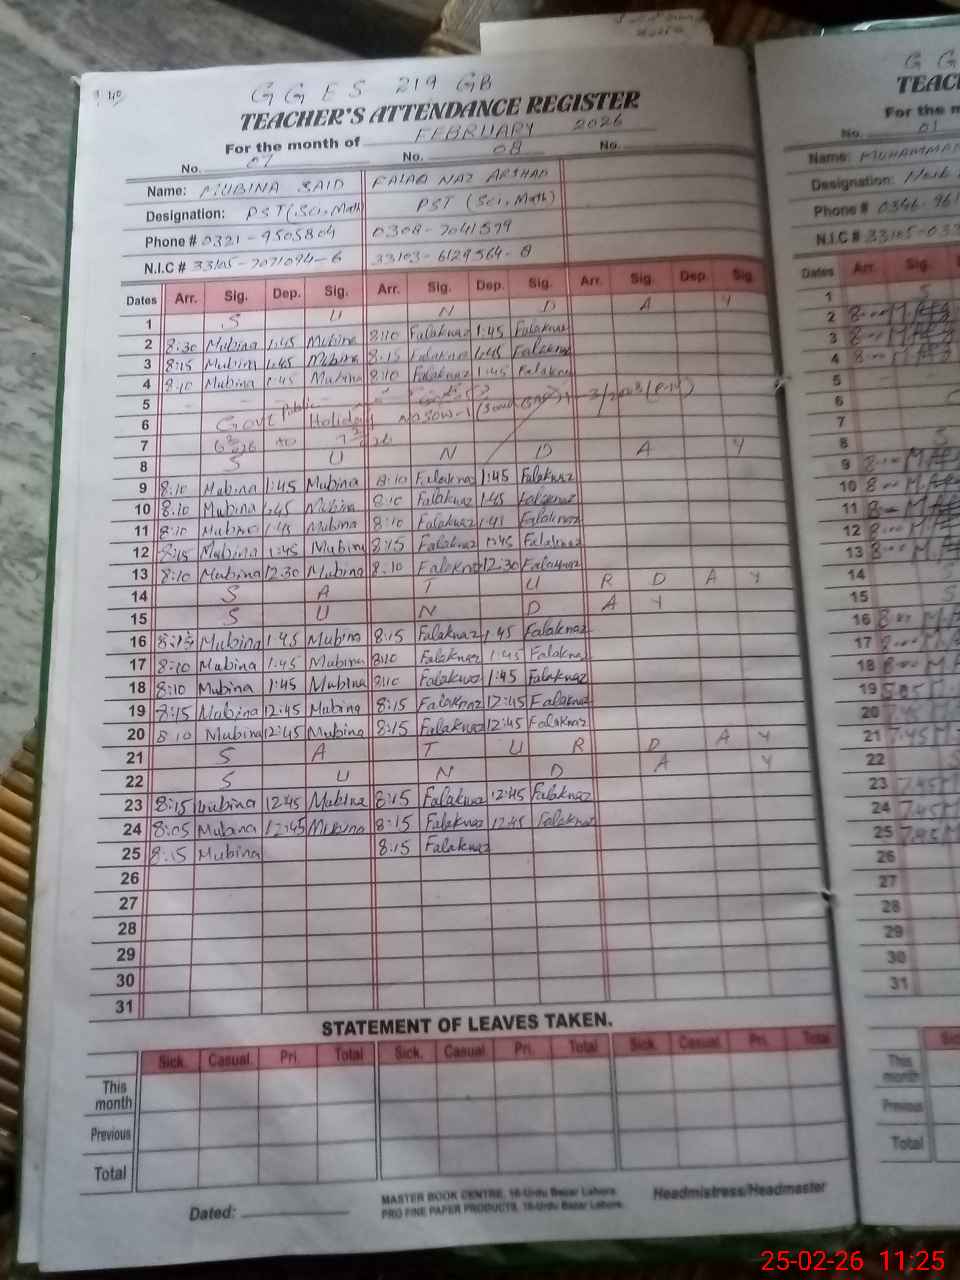 GGES 219 GB
TEACHER'S ATTENDANCE REGISTER
For the month of FEBRUARY 2026
No. 07 No. 08 No.
Name: MUBINA SAID FALAQ NAZ ARSHAD
Designation: PST (Sci, Math) PST (Sci, Math)
Phone # 0321-9505804 0308-7041579
N.I.C # 33105-7071094-6 33103-6129564-8
Dates Arr. Sig. Dep. Sig. Arr. Sig. Dep. Sig. Arr. Sig. Dep. Sig.
1 S U N D A Y
2 8:30 Mubina 1:45 Mubina 8:10 Falaknaz 1:45 Falaknaz
3 8:15 Mubina 1:45 Mubina 8:15 Falaknaz 1:45 Falaknaz
4 8:10 Mubina 1:45 Mubina 8:10 Falaknaz 1:45 Falaknaz
5
6 Govt Public Holiday
7 to
8 S U N D A Y
9 8:10 Mubina 1:45 Mubina 8:10 Falaknaz 1:45 Falaknaz
10 8:10 Mubina 1:45 Mubina 8:10 Falaknaz 1:45 Falaknaz
11 8:10 Mubina 1:45 Mubina 8:10 Falaknaz 1:45 Falaknaz
12 8:15 Mubina 1:45 Mubina 8:15 Falaknaz 1:45 Falaknaz
13 8:10 Mubina 12:30 Mubina 8:10 Falaknaz 12:30 Falaknaz
14 S A T U R D A Y
15 S U N D A Y
16 8:15 Mubina 1:45 Mubina 8:15 Falaknaz 1:45 Falaknaz
17 8:10 Mubina 1:45 Mubina 8:10 Falaknaz 1:45 Falaknaz
18 8:10 Mubina 1:45 Mubina 8:10 Falaknaz 1:45 Falaknaz
19 8:15 Mubina 12:45 Mubina 8:15 Falaknaz 12:45 Falaknaz
20 8:10 Mubina 12:45 Mubina 8:15 Falaknaz 12:45 Falaknaz
21 S A T U R D A Y
22 S U N D A Y
23 8:15 Mubina 12:45 Mubina 8:15 Falaknaz 12:45 Falaknaz
24 8:05 Mubina 12:45 Mubina 8:15 Falaknaz 12:45 Falaknaz
25 8:15 Mubina 8:15 Falaknaz
26
27
28
29
30
31
STATEMENT OF LEAVES TAKEN.
Sick. Casual. Pri. Total Sick. Casual. Pri. Total Sick. Casual. Pri. Total
This month
Previous
Total
Dated:
MASTER BOOK CENTRE, 16-Urdu Bazar Lahore.
PRO FINE PAPER PRODUCTS, 16-Urdu Bazar Lahore.
Headmistress/Headmaster
GG
For the m
No. 01
Name:
Designation:
Phone # 0346-961
N.I.C # 33105-033
Dates Arr. Sig.
1 S
2 8:00
3 8:00
4 8:00
5
6
7
8 S
9 8:00
10 8:00
11 8:00
12 8:00
13 8:00
14
15
16 8:00
17 8:00
18 8:00
19
20 7:45
21 7:45
22
23 7:45
24 7:45
25 7:45
26
27
28
29
30
31
This month
Previous
Total
25-02-26 11:25